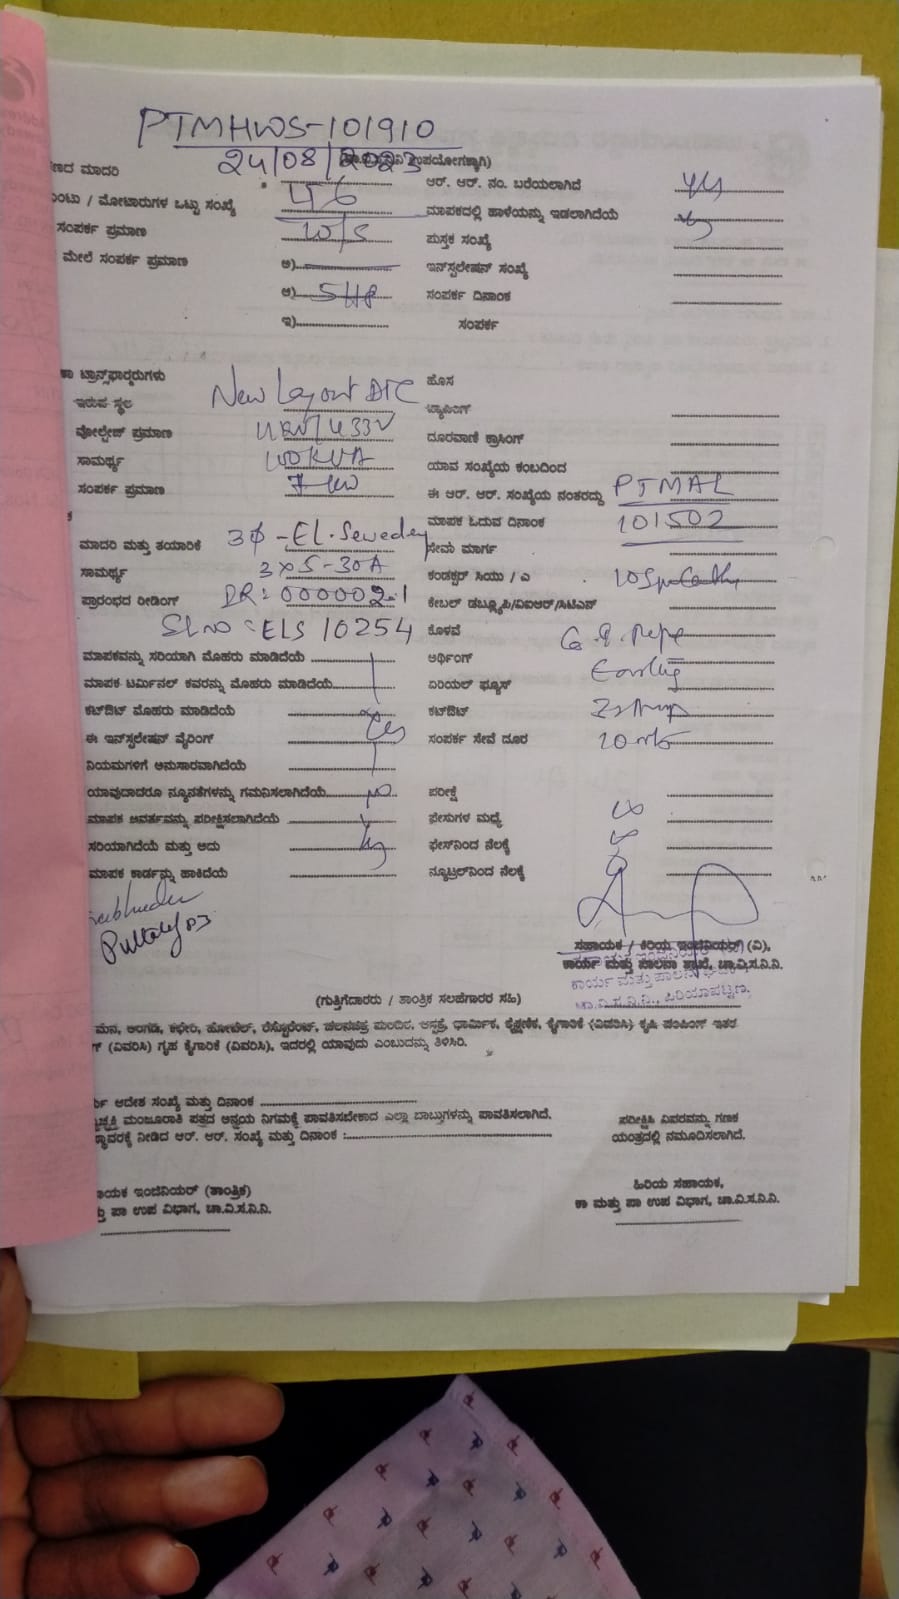 PTMHWS-101910
24/08/2023 ಉಪಯೋಗಕ್ಕಾಗಿ)
ಣದ ಮಾದರಿ ಆರ್. ಆರ್. ನಂ. ಬರೆಯಲಾಗಿದೆ
ಂಟು / ಮೋಟಾರುಗಳ ಒಟ್ಟು ಸಂಖ್ಯೆ ಮಾಪಕದಲ್ಲಿ ಹಾಳೆಯನ್ನು ಇಡಲಾಗಿದೆಯೆ
ಸಂಪರ್ಕ ಪ್ರಮಾಣ ಪುಸ್ತಕ ಸಂಖ್ಯೆ
ಮೇಲೆ ಸಂಪರ್ಕ ಪ್ರಮಾಣ ಅ) ಇನ್‌ಸ್ಟಲೇಷನ್ ಸಂಖ್ಯೆ
ಆ) 5HP ಸಂಪರ್ಕ ದಿನಾಂಕ
ಇ) ಸಂಪರ್ಕ
ಕಾ ಟ್ರಾನ್ಸ್‌ಫಾರ್ಮರುಗಳು ಹೊಸ
ಇರುವ ಸ್ಥಳ New Layout ಟ್ಯಾಪಿಂಗ್
ವೋಲ್ಟೇಜ್ ಪ್ರಮಾಣ 11KV/433V ದೂರವಾಣಿ ಕ್ರಾಸಿಂಗ್
ಸಾಮರ್ಥ್ಯ 100KVA ಯಾವ ಸಂಖ್ಯೆಯ ಕಂಬದಿಂದ
ಸಂಪರ್ಕ ಪ್ರಮಾಣ ಈ ಆರ್. ಆರ್. ಸಂಖ್ಯೆಯ ನಂತರದ್ದು PTMAL
ಮಾಪಕ ಓದುವ ದಿನಾಂಕ 101502
ಮಾದರಿ ಮತ್ತು ತಯಾರಿಕೆ 3Φ-El.Sewedey ಸೇವಾ ಮಾರ್ಗ
ಸಾಮರ್ಥ್ಯ 3x5-30A ಕಂಡಕ್ಟರ್ ಸಿಯು / ಎ
ಪ್ರಾರಂಭದ ರೀಡಿಂಗ್ DR:000002.1 ಕೇಬಲ್ ಡಬ್ಲ್ಯೂಪಿ/ವಿಐಆರ್/ಸಿಟಿಎನ್
Sl no:ELS 10254 ಕೊಳವೆ G.I. Pipe
ಮಾಪಕವನ್ನು ಸರಿಯಾಗಿ ಮೊಹರು ಮಾಡಿದೆಯೆ ಅರ್ಥಿಂಗ್ Earthing
ಮಾಪಕ ಟರ್ಮಿನಲ್ ಕವರನ್ನು ಮೊಹರು ಮಾಡಿದೆಯೆ ಏರಿಯಲ್ ಫ್ಯೂಸ್
ಕಟ್‌ಔಟ್ ಮೊಹರು ಮಾಡಿದೆಯೆ ಕಟ್‌ಔಟ್
ಈ ಇನ್‌ಸ್ಟಲೇಷನ್ ವೈರಿಂಗ್ yes ಸಂಪರ್ಕ ಸೇವೆ ದೂರ
ನಿಯಮಗಳಿಗೆ ಅನುಸಾರವಾಗಿದೆಯೆ
ಯಾವುದಾದರೂ ನ್ಯೂನತೆಗಳನ್ನು ಗಮನಿಸಲಾಗಿದೆಯೆ No ಪರೀಕ್ಷೆ
ಮಾಪಕ ಆವರ್ತವನ್ನು ಪರೀಕ್ಷಿಸಲಾಗಿದೆಯೆ ಫೇಸುಗಳ ಮಧ್ಯೆ ∞
ಸರಿಯಾಗಿದೆಯೆ ಮತ್ತು ಅದು ಫೇಸ್‌ನಿಂದ ನೆಲಕ್ಕೆ
ಮಾಪಕ ಕಾರ್ಡನ್ನು ಹಾಕಿದೆಯೆ ನ್ಯೂಟ್ರಲ್‌ನಿಂದ ನೆಲಕ್ಕೆ
ಸಹಾಯಕ / ಕಿರಿಯ ಇಂಜಿನಿಯರ್ (ವಿ),
ಕಾರ್ಯ ಮತ್ತು ಪಾಲನಾ ಶಾಖೆ, ಚಾ.ವಿ.ಸ.ನಿ.ನಿ.
ಚಾ.ವಿ.ಸ.ನಿ.ನಿ., ಪಿರಿಯಾಪಟ್ಟಣ.
(ಗುತ್ತಿಗೆದಾರರು / ತಾಂತ್ರಿಕ ಸಲಹೆಗಾರರ ಸಹಿ)
ಮನೆ, ಅಂಗಡಿ, ಕಛೇರಿ, ಹೋಟೆಲ್, ರೆಸ್ಟೋರೆಂಟ್, ಚಲನಚಿತ್ರ ಮಂದಿರ, ಆಸ್ಪತ್ರೆ, ಧಾರ್ಮಿಕ, ಶೈಕ್ಷಣಿಕ, ಕೈಗಾರಿಕೆ (ವಿವರಿಸಿ) ಕೃಷಿ ಪಂಪಿಂಗ್ ಇತರ
(ವಿವರಿಸಿ) ಗೃಹ ಕೈಗಾರಿಕೆ (ವಿವರಿಸಿ), ಇದರಲ್ಲಿ ಯಾವುದು ಎಂಬುದನ್ನು ತಿಳಿಸಿರಿ.
ಆದೇಶ ಸಂಖ್ಯೆ ಮತ್ತು ದಿನಾಂಕ
ಮಂಜೂರಾತಿ ಪತ್ರದ ಅನ್ವಯ ನಿಗಮಕ್ಕೆ ಪಾವತಿಸಬೇಕಾದ ಎಲ್ಲಾ ಬಾಬ್ತುಗಳನ್ನು ಪಾವತಿಸಲಾಗಿದೆ. ಪರೀಕ್ಷಿಸಿ ವಿವರವನ್ನು ಗಣಕ
ನೀಡಿದ ಆರ್. ಆರ್. ಸಂಖ್ಯೆ ಮತ್ತು ದಿನಾಂಕ : ಯಂತ್ರದಲ್ಲಿ ನಮೂದಿಸಲಾಗಿದೆ.
ಾಯಕ ಇಂಜಿನಿಯರ್ (ತಾಂತ್ರಿಕ) ಹಿರಿಯ ಸಹಾಯಕ,
ತು ಪಾ ಉಪ ವಿಭಾಗ, ಚಾ.ವಿ.ಸ.ನಿ.ನಿ. ಕಾ ಮತ್ತು ಪಾ ಉಪ ವಿಭಾಗ, ಚಾ.ವಿ.ಸ.ನಿ.ನಿ.